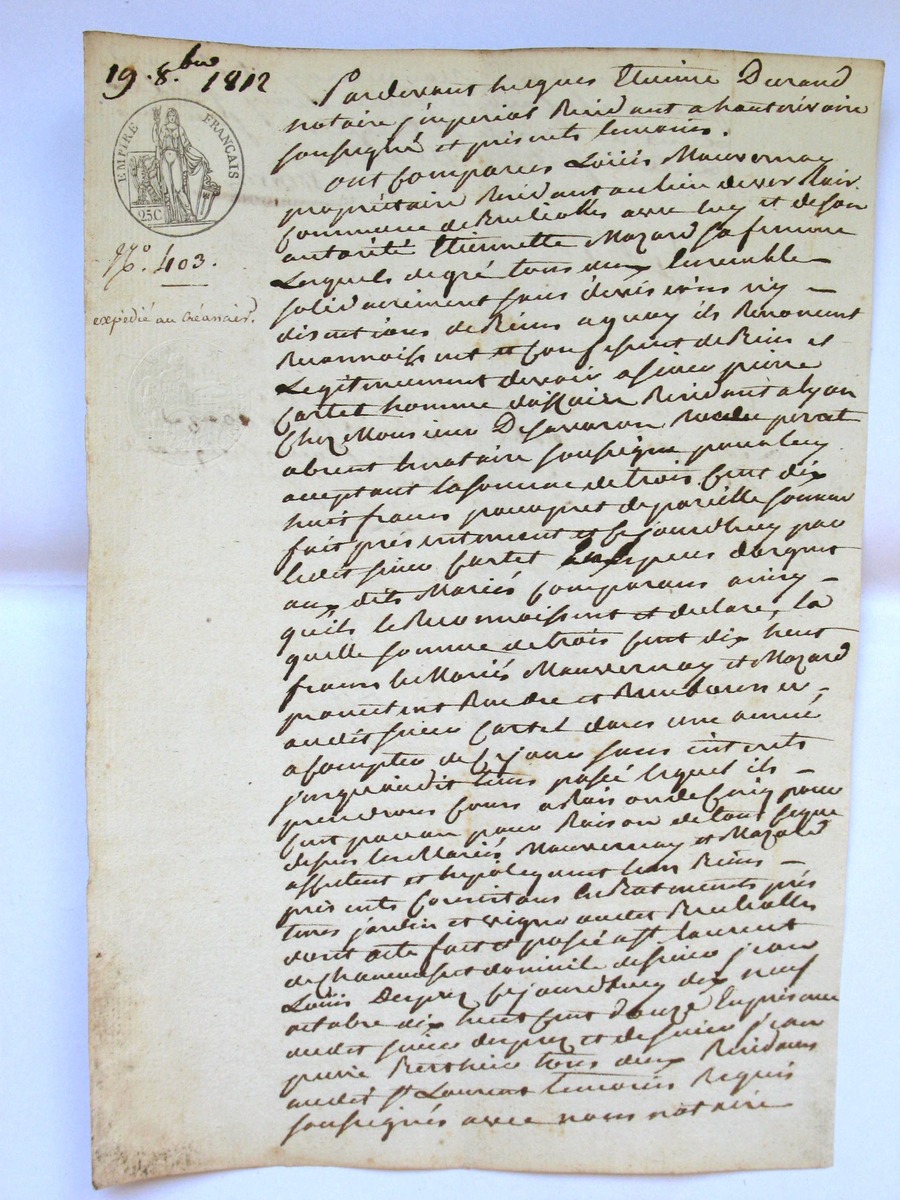 19. 8.bre 1812
EMPIRE FRANÇAIS
25C
N.o 403.
expédié au Créancier.
Pardevant Jacques Etienne Durand
notaire jmperial Residant a hauterivoire
soussigné et présents temoins.
ont Comparus Loüis Mauvernay
propriétaire Residant au lieu de
Commune de Brullolles avec luy et de son
autorité Etiennette Mazard sa femme
Lesquels de gré tous deux Ensemble
solidairement sans division ny
discutions de Biens a quoy ils Renoncent
Reconnoissent et Confessent de Bien et
Legitimement devoir a sieur pierre
Cartet homme daffaire Residant a Lyon
Chez Monsieur Desavaron Rue du perat
absent le notaire soussigné pour luy
acceptant la somme de trois Cent dix
huit francs pour pret de pareille somme
fait présentement et Cejourdhuy par
ledit sieur Cartet en Especes dargent
aux dits Mariés Comparans ainsy
quils le Reconnoissent et declare, la
quelle somme de trois Cent dix huit
francs les Mariés Mauvernay et Mazard
promettent Rendre et Rembourser
audit sieur Cartet dans une année
a Compter de Ce jour sans interets
jusquaudit tems passé lequel ils
prendrons Cours a Raison de Cinq pour
Cent par an pour Raison de tout Ceque
dessus les Mariés Mauvernay et Mazard
affectent et hypotequent leur Biens
présents Consistans En Batiments prés
terres jardin et vigne audit Brullolles
dont acte fait et passé a St. Laurent
de Chamousset domicile de sieur jean
Loüis Duprez Cejourdhuy dix neuf
octobre dix huit Cent douze En présence
dudit sieur duprez et de sieur jean
pierre Berthier tous deux Residants
audit St Laurent temoins Requis
soussignés avec nous notaire